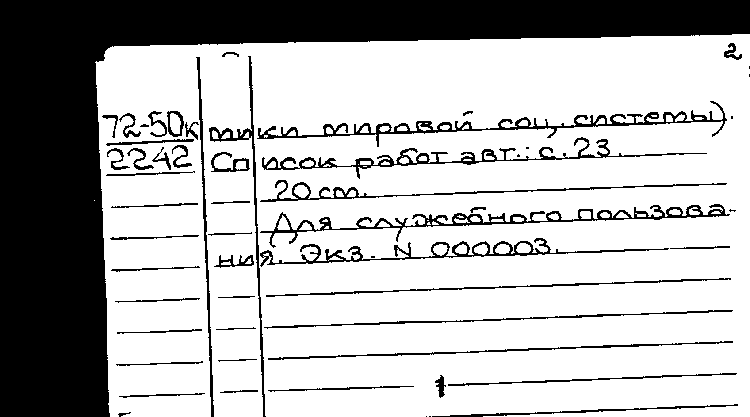 2
72-50к тики мировой соц. системы).
2242 Список работ авт.: с. 23.
20 cm.
Для служебного пользова-
ния. Экз. N 000003.
1